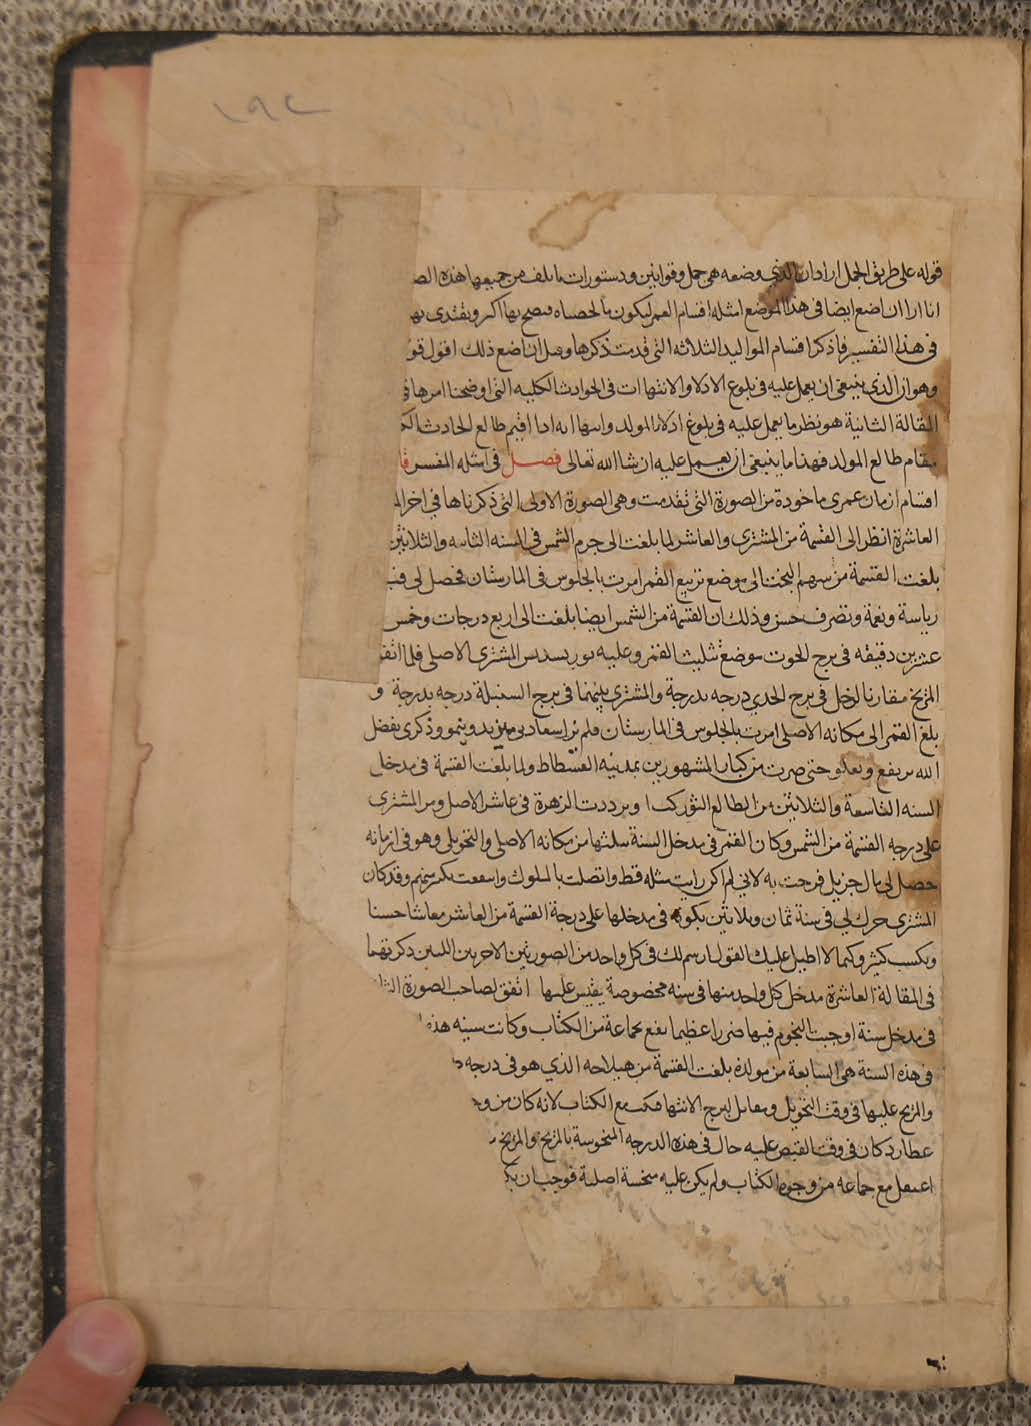 قوله على طريق الجمل اراد ان الذي وضعه هي جمل وقوانين ودستورات ياتلف من جميعها هذه الصـ
انا ارا ان اضع ايضا في هذا الموضع امثله اقسام العمر ليكون بالحصاه فيصح بها اكثر ويقتدى بها
في هذا التفسير فاذكر اقسام المواليد الثلاثه التي قدمت ذكرها وقبل ان اضع ذلك اقول قو
وهو ان الذي ينبغي ان يعمل عليه في بلوغ الادلا والانتهاات في الحوادث الكليه التي اوضحنا امرها في
المقالة الثانية هو نظر ما يعمل عليه في بلوغ ادلاء المولد وانتهااته اذا اقيم طالع الحادث الكـ
مقام طالع المولد فهذا ما ينبغي ان يعمل عليه ان شا الله تعالى فصل في امثله المفسر فا
اقسام ازمان عمرى ماخوذة من الصورة التي تقدمت وهي الصورة الاولى التي ذكرناها في اخر الم
العاشرة انظر الى القسمة من المشترى والعاشر لما بلغت الى جرم الشمس في السنه الثانيه والثلاثين
بلغت القسمة من سهم البخت الى موضع تربيع القمر امرت بالجلوس في المارستان فحصل لي فيـ
رياسة ونعمة وتصرف حسن وذلك ان القسمة من الشمس ايضا بلغت الى اربع درجات وخمس
عشرين دقيقه في برج الحوت موضع تثليث القمر وعليه نور تسديس المشترى الاصلي فلما اتفق
المريخ مقارنا لزحل في برج الجدي درجه بدرجة والمشترى يليهما في برج السنبلة درجه بدرجة و
بلغ القمر الى مكانه الاصلي امرت بالجلوس في المارستان فلم تزل سعادتي تزيد وتنمو وذكرى بفضل
الله يرتفع ويعلو حتى صرت من كبار المشهورين بمدينه الفسطاط ولما بلغت القسمة في مدخل
السنه التاسعة والثلاثين من الطالع الثور كـ ا وترددت الزهرة في عاشر الاصل ومر المشترى
على درجه القسمة من الشمس وكان القمر في مدخل السنة سلثها من مكانه الاصلي والتحويلي وهو في ازمانه
حصل لي مال جزيل فرحت به لاني لم اكن رايت مثله قط واتصلت بالملوك وانتفعت بكريمتهم وقد كان
المشترى حرك لي في سنة ثمان وثلاثين بكونه في مدخلها على درجة القسمة من العاشر معاشا حسنا
وبكسب كثير وكيما لا اطيل عليك القول ارسم لك في كل واحد من الصورتين الاخريين اللتين ذكرتهما
في المقالة العاشرة مدخل كل واحد منها في سنه مخصوصة يقيس عليها اتفق لصاحب الصورة الثا
في مدخل سنة اوجبت النجوم فيها ضررا عظيما يقع بجماعة من الكتاب وكانت سنيه هذه
في هذه السنة هي السابعة من مولده بلغت القسمة من هيلاجه الذي هو في درجه
والمريخ عليها في وقت التحويل ومقابل لبرج الانتها فنكب مع الكتاب لانه كان من و
عطارد كان في وقت القبض عليه حال في هذه الدرجه المنحوسة بالمريخ والمريخ
اعتقل مع جماعه من وجوه الكتاب ولم يكن عليه منحسة اصلية فوجب ان يكـ